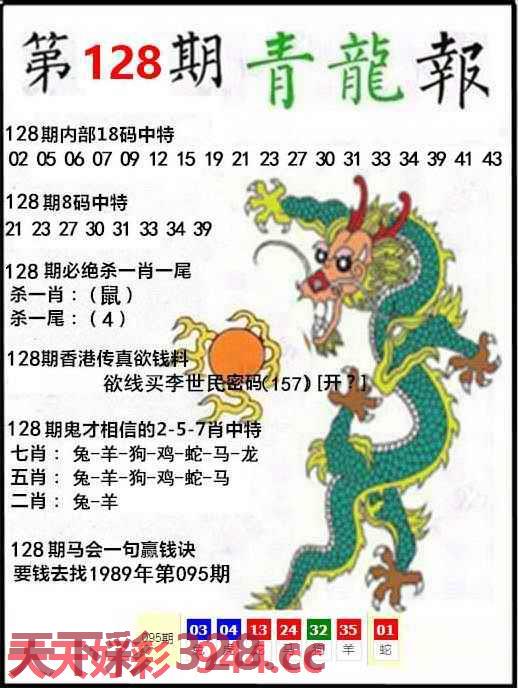 第128期青龍報
128期内部18码中特
02 05 06 07 09 12 15 19 21 23 27 30 31 33 34 39 41 43
128期8码中特
21 23 27 30 31 33 34 39
128期必绝杀一肖一尾
杀一肖:(鼠)
杀一尾:(4)
128期香港传真欲钱料
欲线买李世民密码(157)[开?]
128期鬼才相信的2-5-7肖中特
七肖:兔-羊-狗-鸡-蛇-马-龙
五肖:兔-羊-狗-鸡-蛇-马
二肖:兔-羊
128期马会一句赢钱诀
要钱去找1989年第095期
095期 03 04 13 24 32 35 01
羊 蛇
天天好彩3924.cc